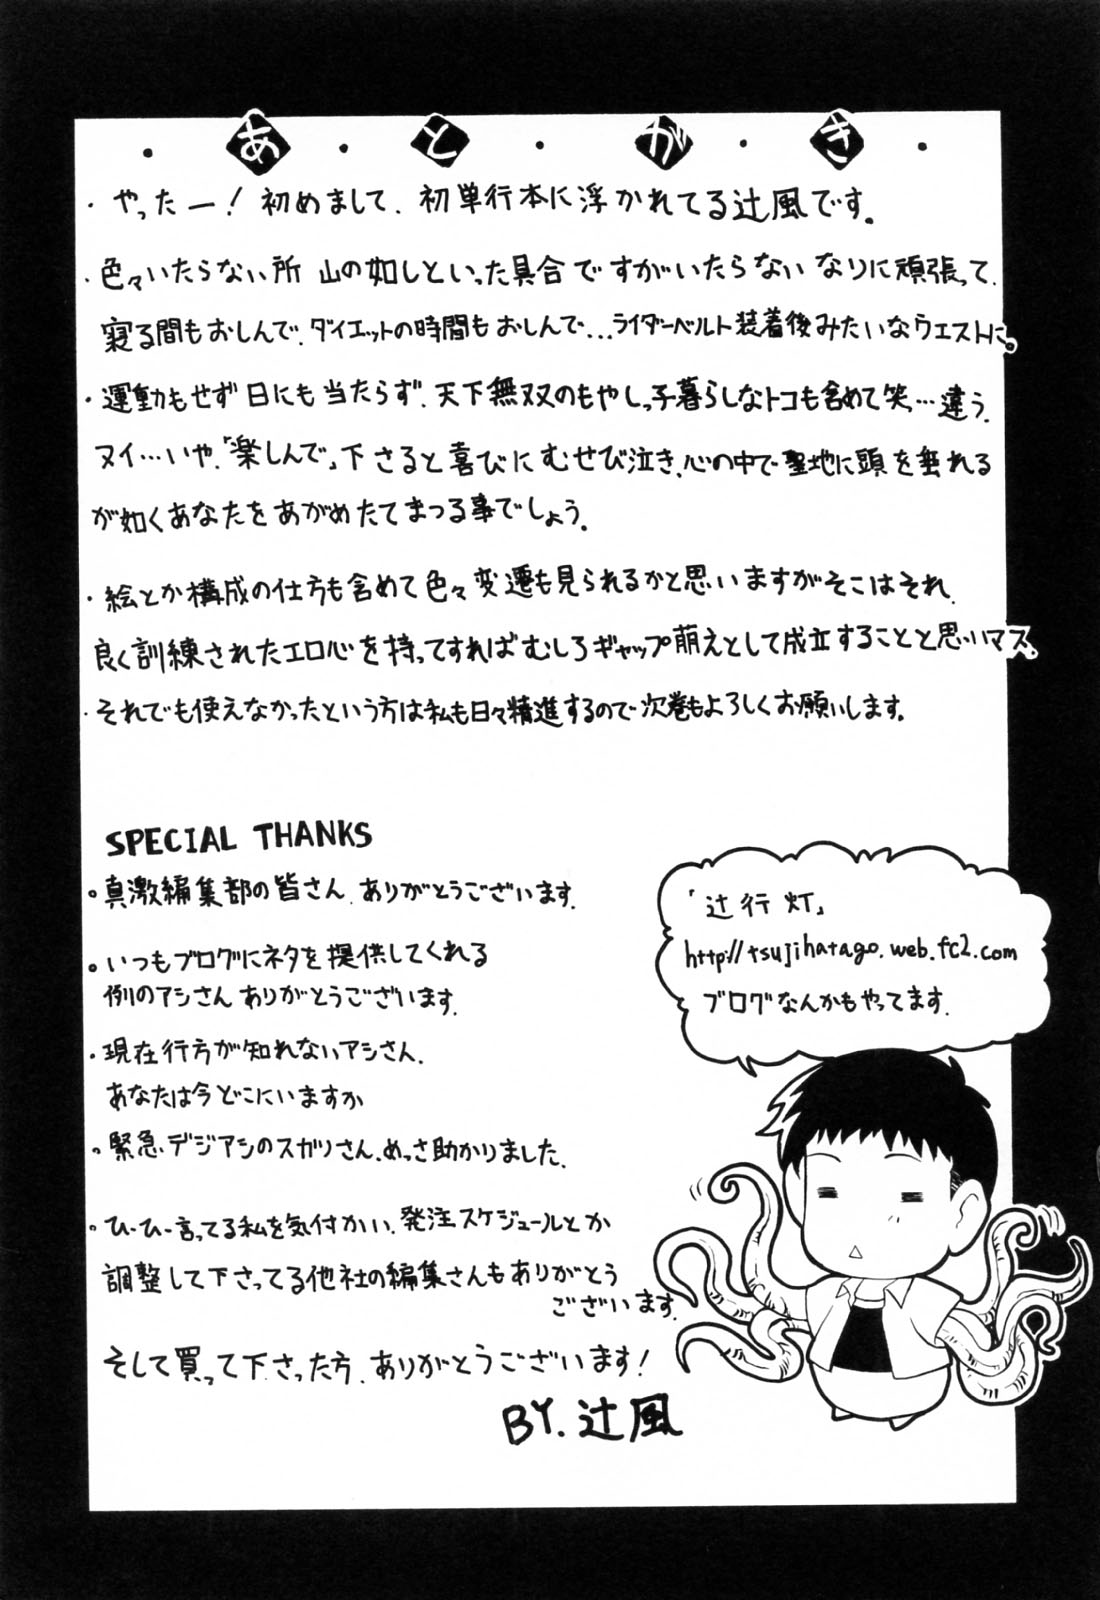 あ・と・が・き
・やったー! 初めまして、初単行本に浮かれてる辻風です。
・色々いたらない所 山の如しといった具合ですがいたらないなりに頑張って、
寝る間もおしんで、ダイエットの時間もおしんで…ライダーベルト装着後みたいなウエストに。
・運動もせず日にも当たらず、天下無双のもやしっ子暮らしなトコも含めて笑、…違う、
ヌイ…いや、「楽しんで」下さると喜びにむせび泣き、心の中で聖地に頭を垂れる
が如くあなたをあがめたてまつる事でしょう。
・絵とか構成の仕方も含めて色々変遷も見られるかと思いますがそこはそれ、
良く訓練されたエロ心を持ってすればむしろギャップ萌えとして成立することと思いマス。
・それでも使えなかったという方は私も日々精進するので次巻もよろしくお願いします。
SPECIAL THANKS
。真激編集部の皆さん、ありがとうございます。
。いつもブログにネタを提供してくれる
例のアシさん ありがとうございます。
・現在行方が知れないアシさん、
あなたは今どこにいますか
。緊急デジアシのスガリさん、めっさ助かりました。
。ひーひー言ってる私を気付かい、発注スケジュールとか
調整して下さってる他社の編集さんもありがとう
ございます。
そして買って下さった方、ありがとうございます!
BY.辻風
「辻行灯」
http://tsujihatago.web.fc2.com
ブログなんかもやってます。